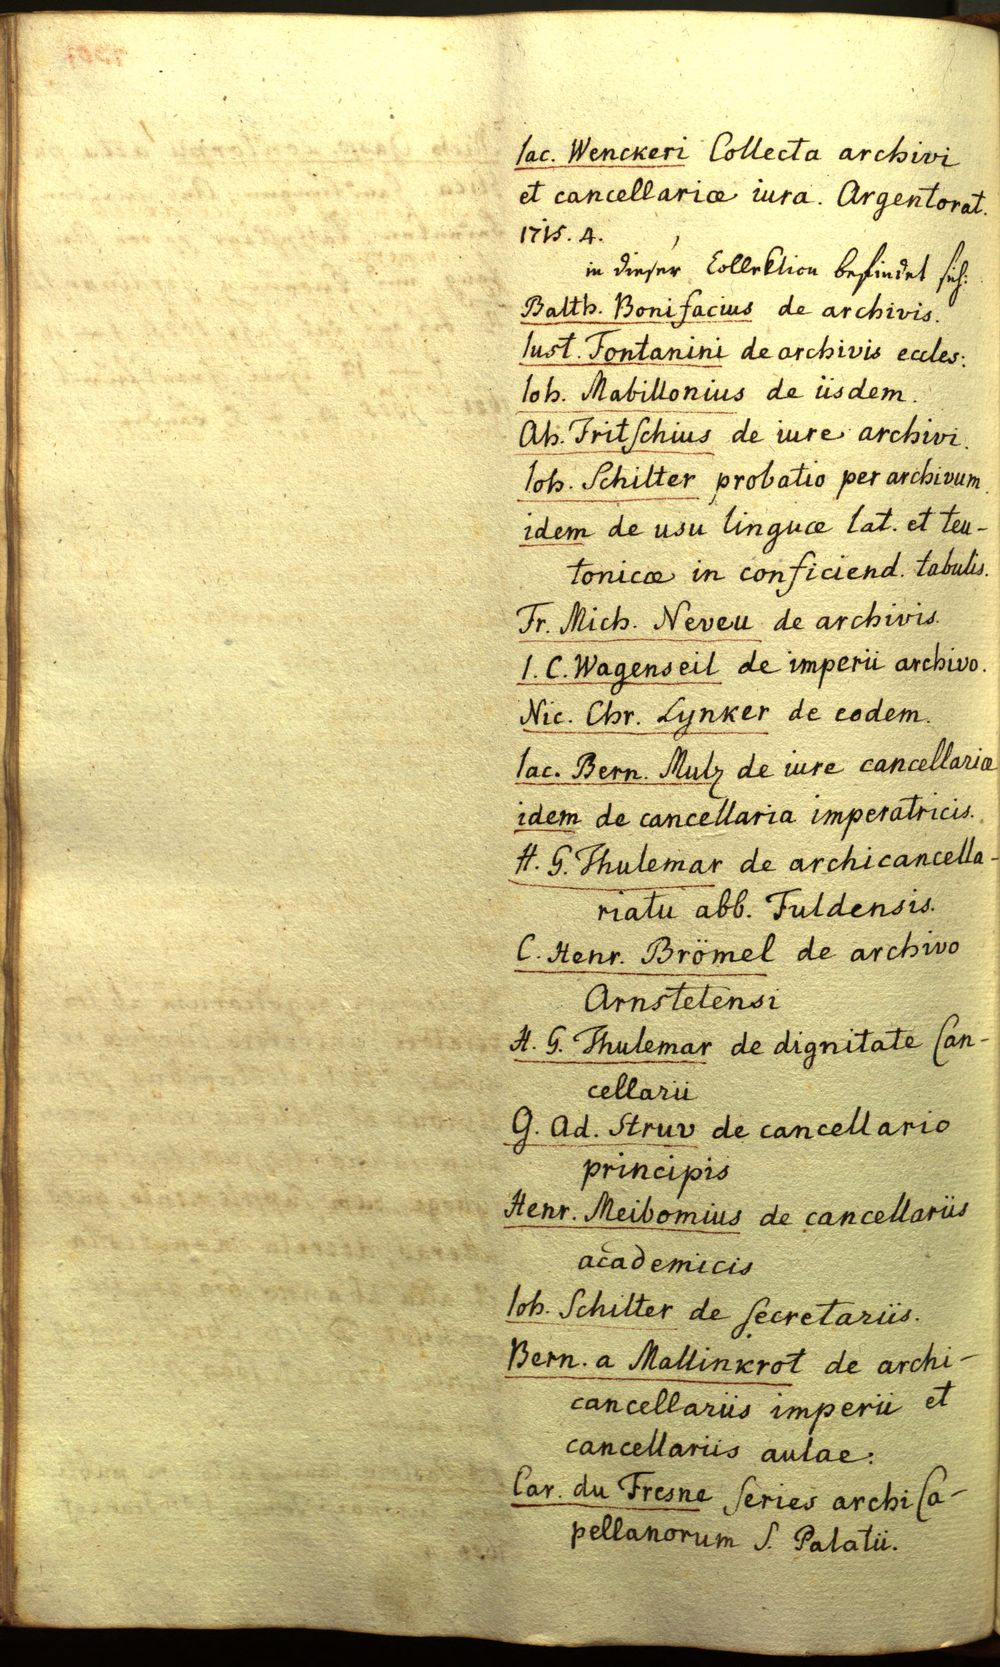 Iac. Wenckeri Collecta archivi
et cancellariæ iura. Argentorat.
1715. 4.
in dieser Collektion befindet sich:
Balth. Bonifacius de archivis.
Iust. Fontanini de archivis eccles:
Ioh. Mabillonius de iisdem.
Ah. Fritschius de iure archivi.
Ioh. Schilter probatio per archivum.
idem de usu linguæ lat. et teu-
tonicæ in conficiend. tabulis.
Fr. Mich. Neveu de archivis.
I. C. Wagenseil de imperii archivo.
Nic. Chr. Lynker de eodem.
Iac. Bern. Mulz de iure cancellariæ
idem de cancellaria imperatricis.
H. G. Thulemar de archicancella-
riatu abb. Fuldensis.
C. Henr. Brömel de archivo
Arnstetensi
H. G. Thulemar de dignitate Can-
cellarii
G. Ad. Struv de cancellario
principis
Henr. Meibomius de cancellariis
academicis
Ioh. Schilter de secretariis.
Bern. a Mallinkrot de archi-
cancellariis imperii et
cancellariis aulae:
Car. du Fresne Series archi Ca-
pellanorum S. Palatii.